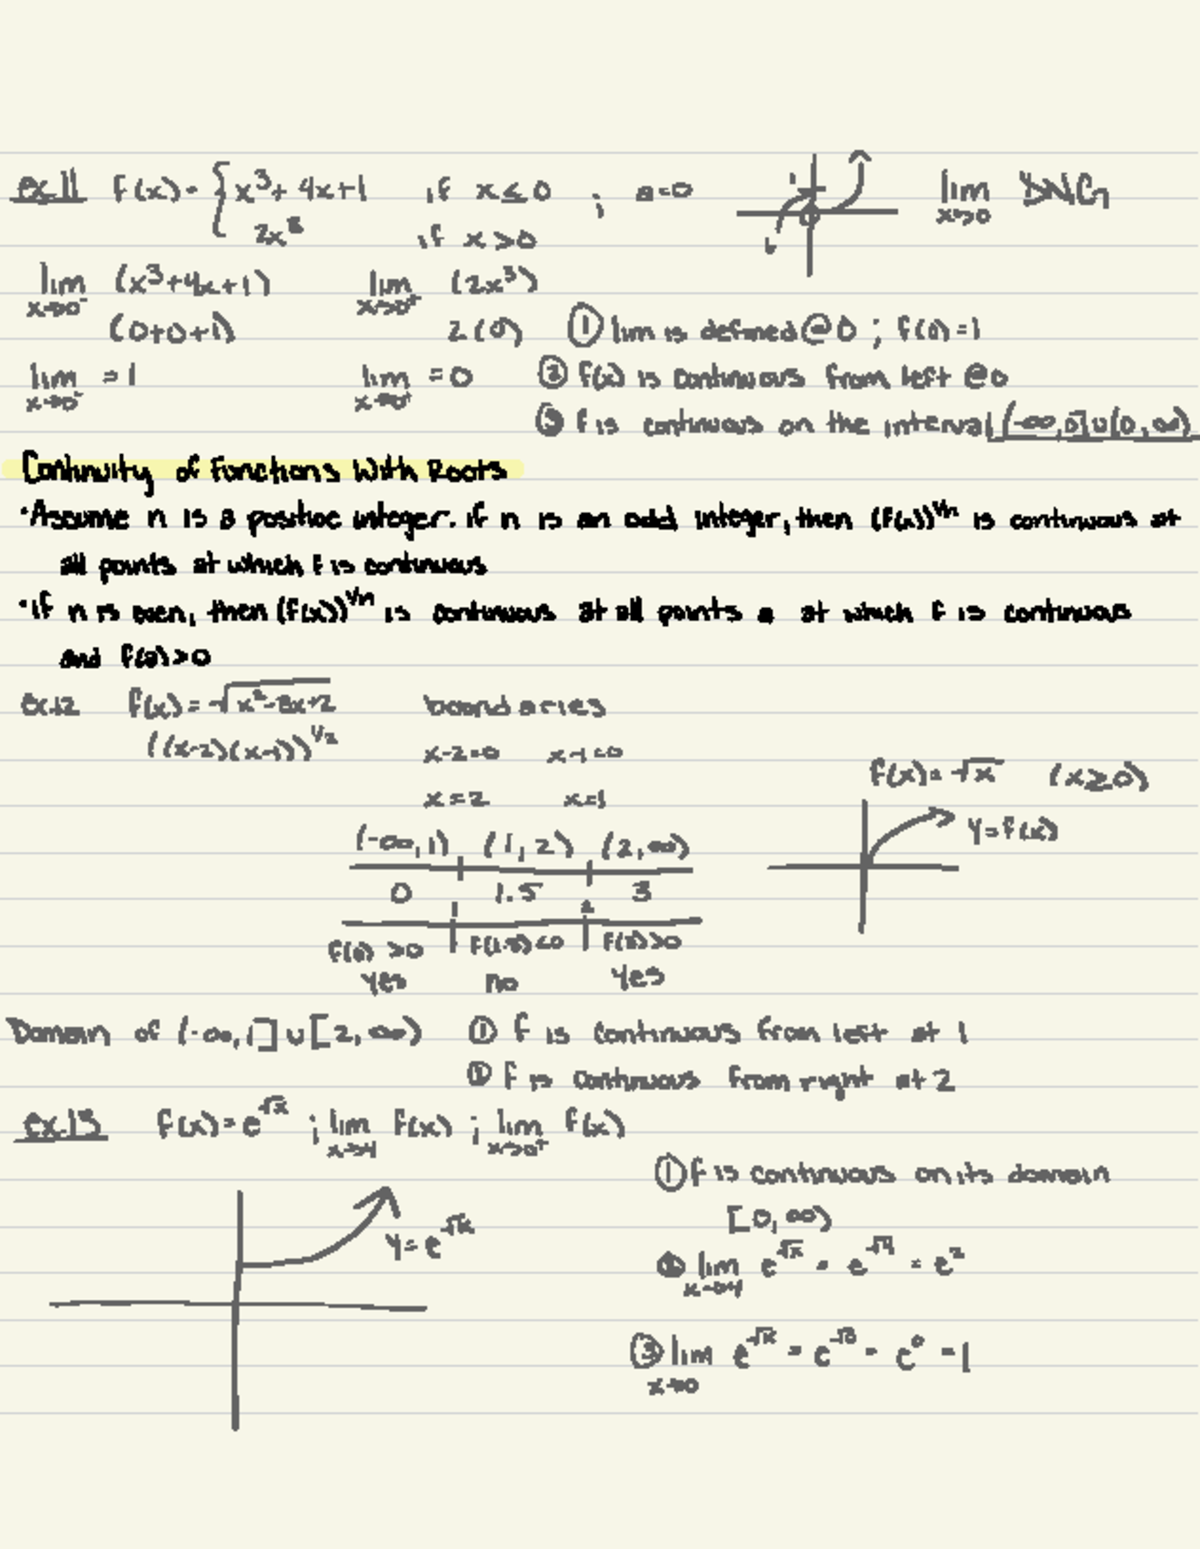 ex.11 f(x) = { x³ + 4x + 1 if x ≤ 0 ; a = 0
2x³ if x > 0
lim x→0 DNG
lim x→0⁻ (x³ + 4x + 1) lim x→0⁺ (2x³)
(0+0+1) 2(0) ① lim is defined @ 0 ; f(0) = 1
lim x→0⁻ = 1 lim x→0⁺ = 0 ② f(x) is continuous from left @ 0
③ f is continuous on the interval (-∞, 0] ∪ (0, ∞)
Continuity of Functions With Roots
• Assume n is a positive integer. if n is an odd integer, then (f(x))^1/n is continuous at
all points at which f is continuous
• if n is even, then (f(x))^1/n is continuous at all points a at which f is continuous
and f(a) > 0
ex.12 f(x) = √x² - 3x + 2 boundaries
((x-2)(x-1))^1/2 x-2=0 x-1=0
x = 2 x = 1
f(x) = √x (x ≥ 0)
y = f(x)
(-∞, 1) (1, 2) (2, ∞)
0 1.5 3
1 2
f(0) > 0 f(1.5) < 0 f(3) > 0
yes no yes
Domain of (-∞, 1] ∪ [2, ∞) ① f is continuous from left at 1
② f is continuous from right at 2
ex.13 f(x) = e^√x ; lim x→4 f(x) ; lim x→0⁺ f(x)
① f is continuous on its domain
[0, ∞)
y = e^√x
② lim x→4 e^√x = e^√4 = e²
③ lim x→0 e^√x = e^√0 = e⁰ = 1